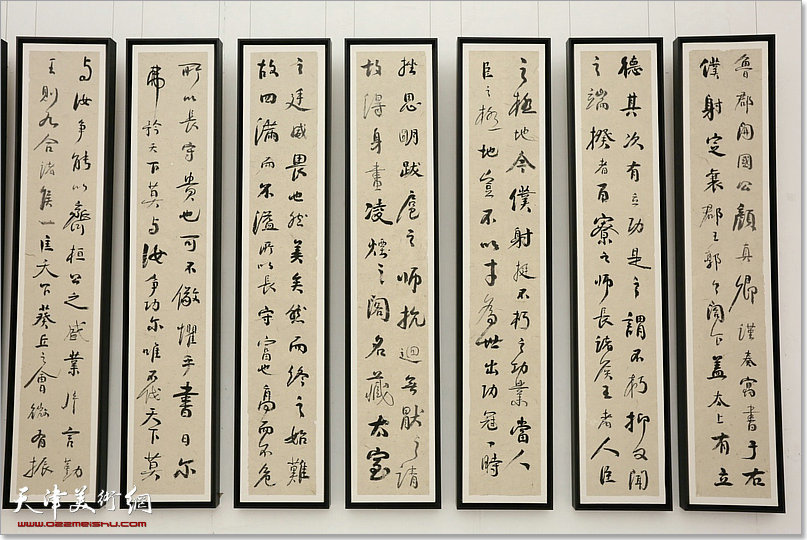 魯郡開國公顏真卿謹奉寓書于右
僕射定襄郡王郭公閣下蓋太上有立
德其次有立功是之謂不朽抑又聞
之端揆者百寮之師長諸侯王者人臣
之極地今僕射挺不朽之功業當人
臣之極地豈不以才為世出功冠一時
挫思明跋扈之师抗迴無厭之請
故得身畫凌煙之阁名藏太室
之廷威畏也然美矣然而终之始難
故曰滿而不溢所以長守富也高而不危
所以長守貴也可不儆懼乎書曰尔
弗矜天下莫与汝争功尔唯不伐天下莫
与汝争能以齊桓公之盛業片言勤
王則九合諸侯一匡天下葵丘之會微有振
天津美術網
www.022meishu.com